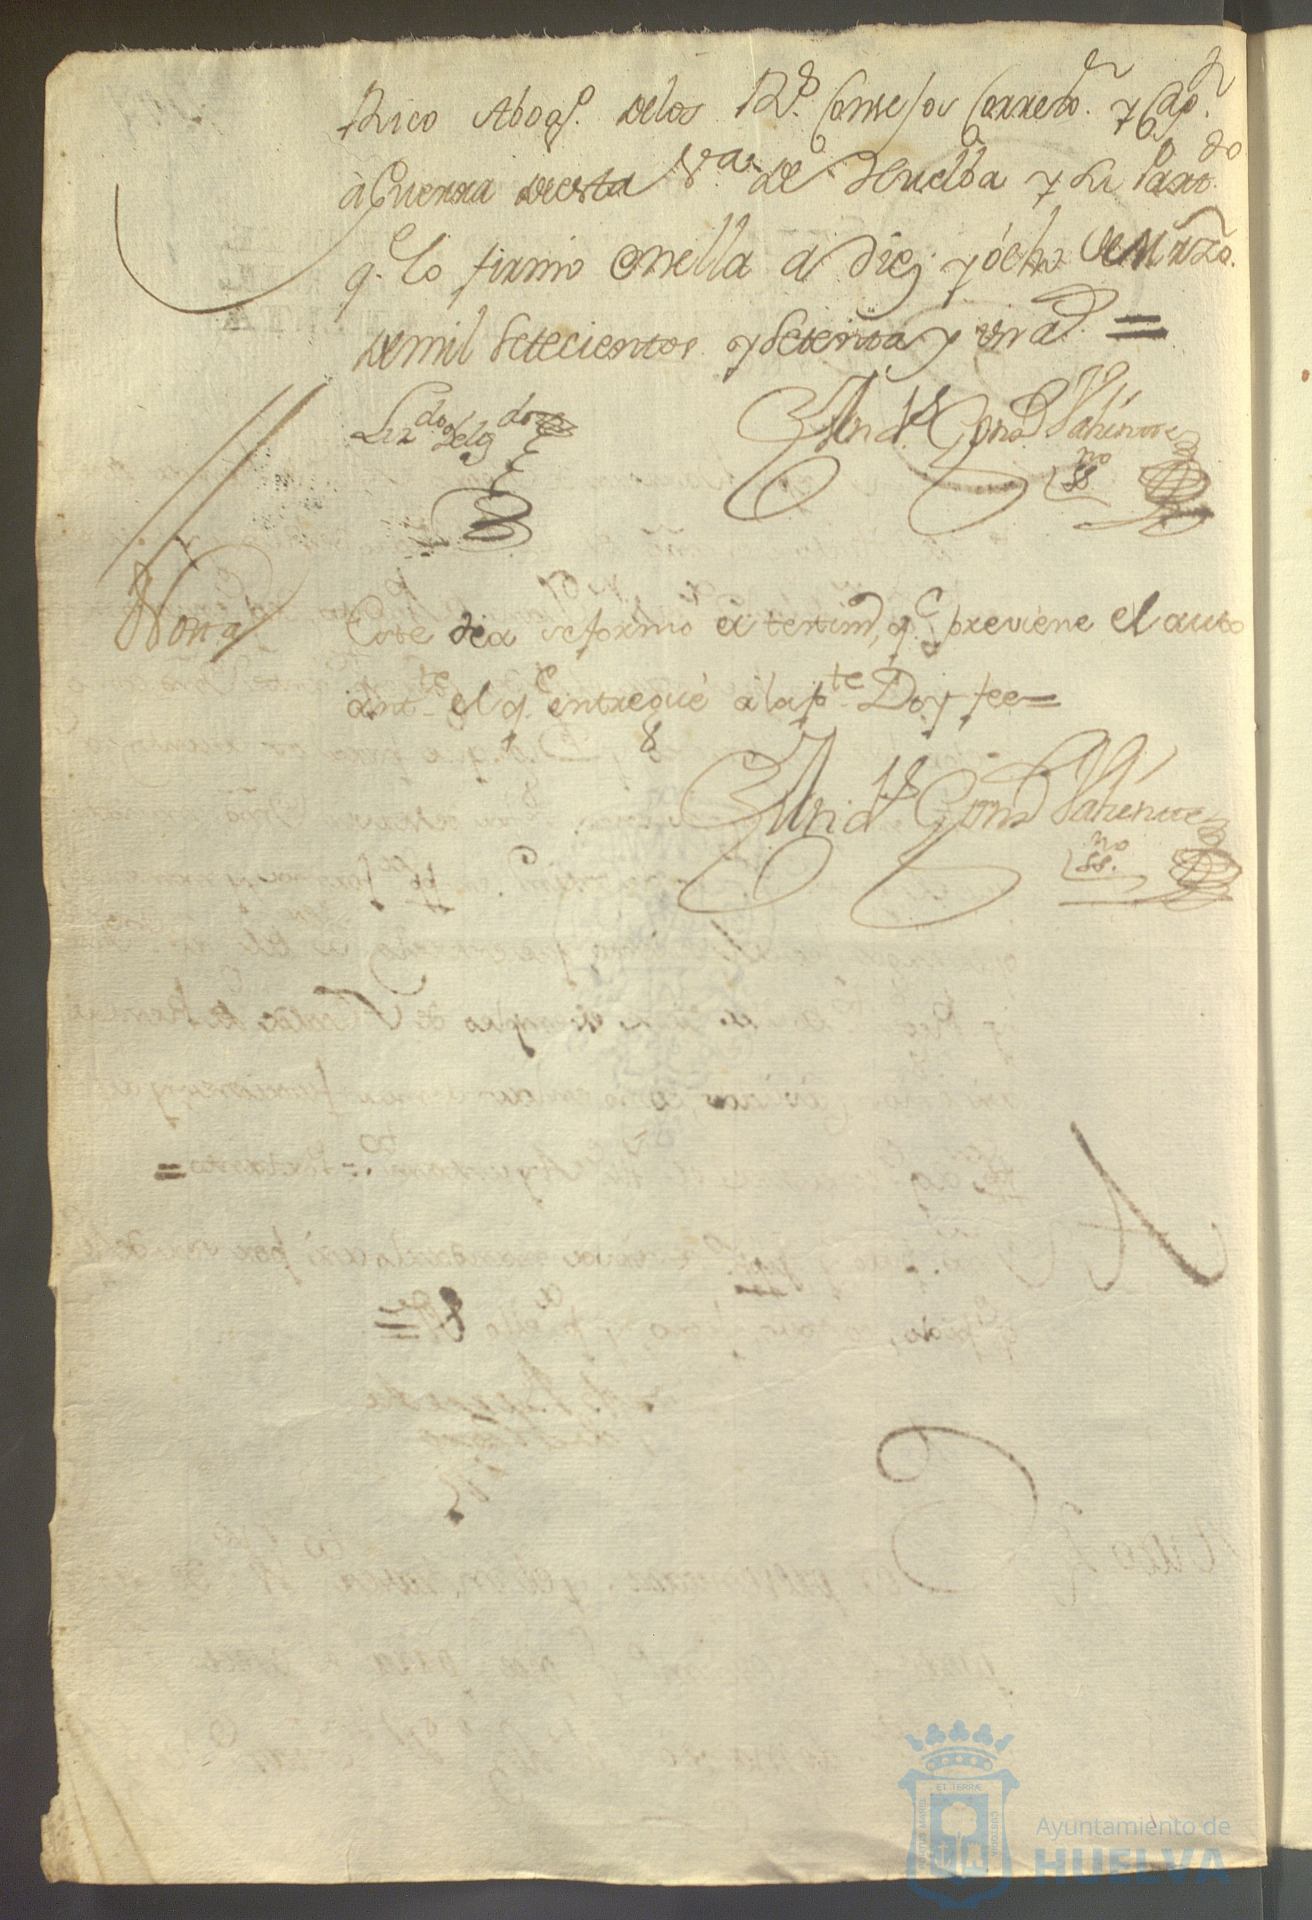 Rico Abogº. de los Rs. Consejos Correxor. y Capn.
à Guerra de esta Vª. de Huelba y su Partdo.
qe. lo firmó en ella a diez y ócho de Marzo.
de mil Setecientos y Setenta y un ad. =
Lizdo Delgdo
Antº. Gonz Valiente
SSno
Nota
Este dia se formó el testimº, qe previene el auto
antte. el qe. entregué à la pte. Doy fee=
Antº. Gonz Valiente
SSno.
Ayuntamiento de
HUELVA